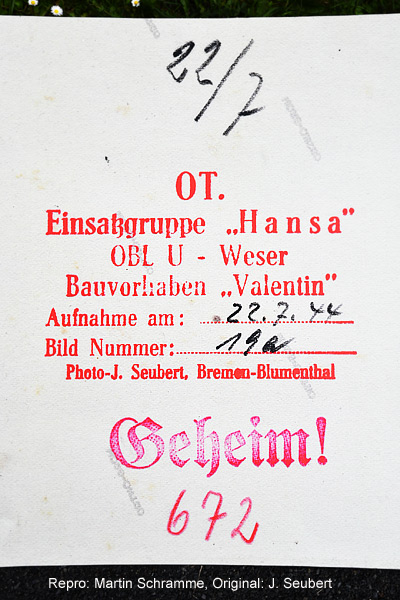 22/7
OT.
Einsatzgruppe „Hansa"
OBL U - Weser
Bauvorhaben „Valentin"
Aufnahme am: 22.7.44
Bild Nummer: 19a
Photo-J. Seubert, Bremen-Blumenthal
Geheim!
672
Repro: Martin Schramme, Original: J. Seubert